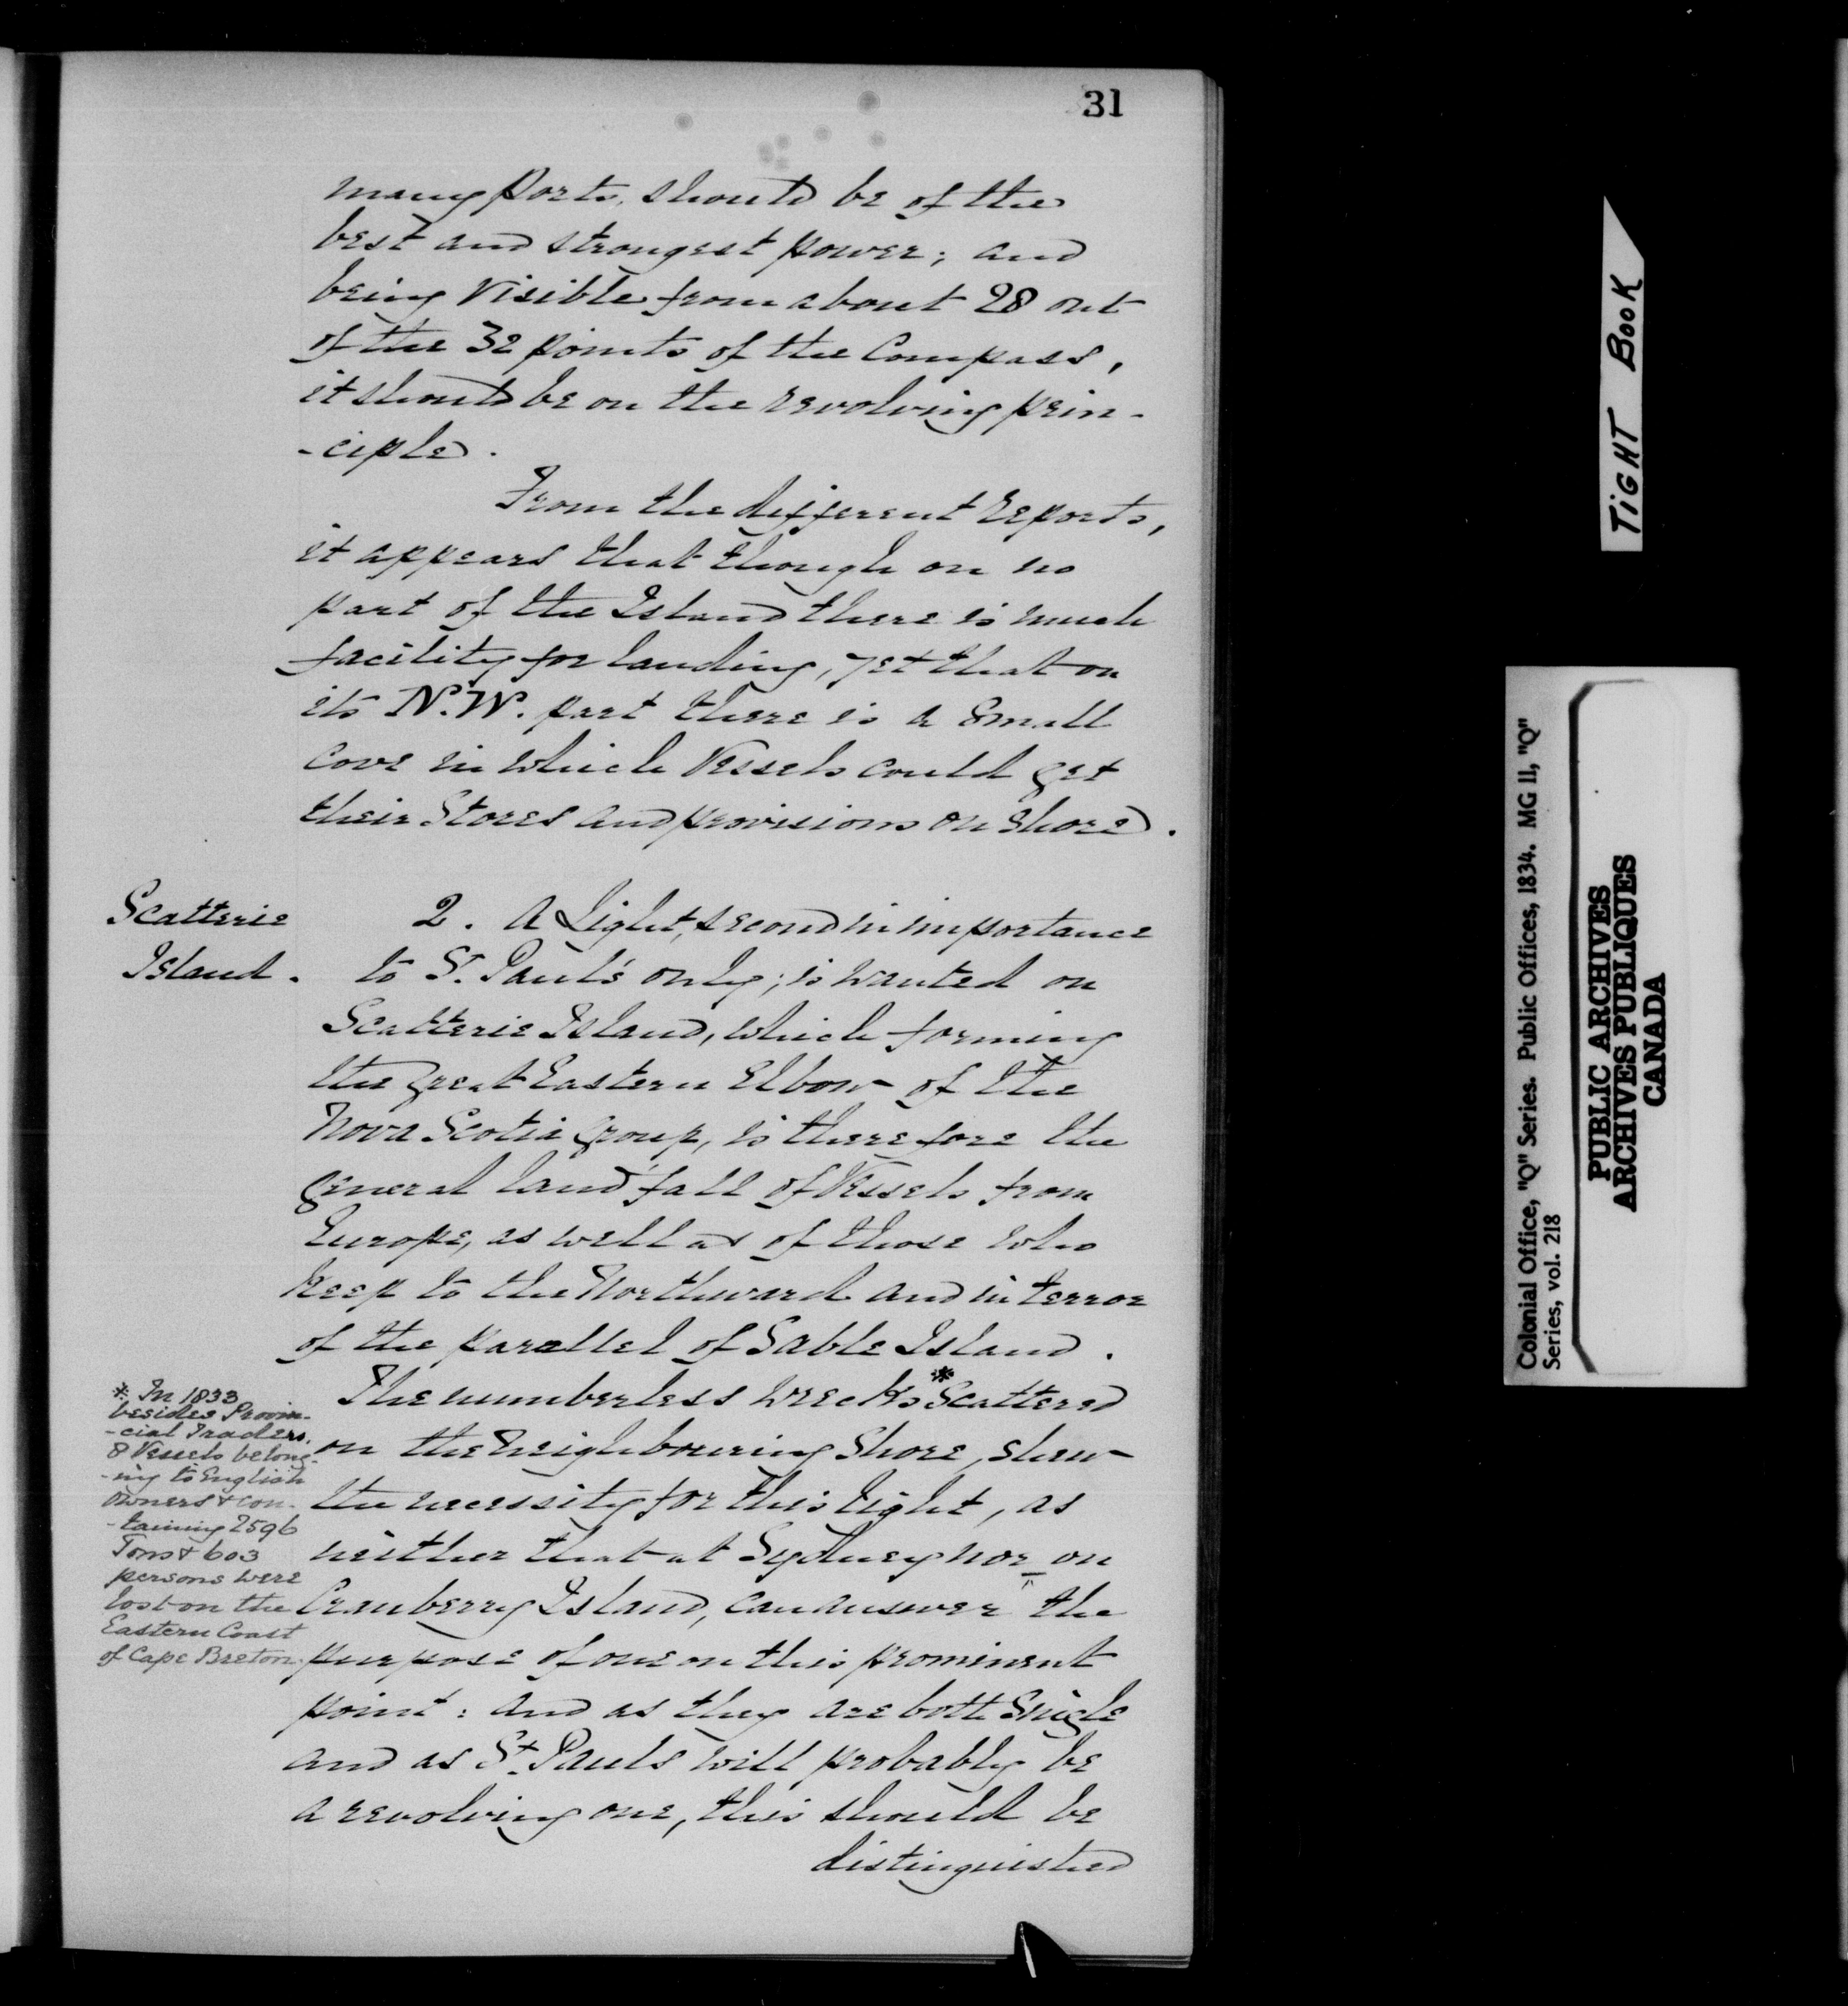 31
many ports, should be of the
best and strongest power; and
being Visible from about 28 out
of the 32 points of the Compass,
it should be on the revolving prin-
-ciple.
From the different Reports,
it appears that though on no
part of the Island there is much
facility for landing, yet that on
its N.W. part there is a Small
Cove in which Vessels could get
their Stores and provisions on shore.
Scatterie
Island.
2. A Light, second in importance
to St. Paul's only; is wanted on
Scatterie Island, which forming
the Great Eastern Elbow of the
Nova Scotia Group, is therefore the
General land fall of Vessels from
Europe, as well as of those who
keep to the Northward and in terror
of the parallel of Sable Island.
The numberless Wrecks * Scattered
on the Neighbouring Shore, shew
the necessity for this light, as
neither that at Sydney nor on
Cranberry Island, can answer the
purpose of one on this prominent
point: and as they are both Single
and as St. Pauls will probably be
a revolving one, this should be
distinguished
* In 1833
besides Provin-
-cial Traders,
8 Vessels belong-
-ing to English
owners & con-
-taining 2596
Tons & 603
persons were
lost on the
Eastern Coast
of Cape Breton.
TIGHT BOOK
Colonial Office, "Q" Series. Public Offices, 1834. MG 11, "Q"
Series, vol. 218
PUBLIC ARCHIVES
ARCHIVES PUBLIQUES
CANADA